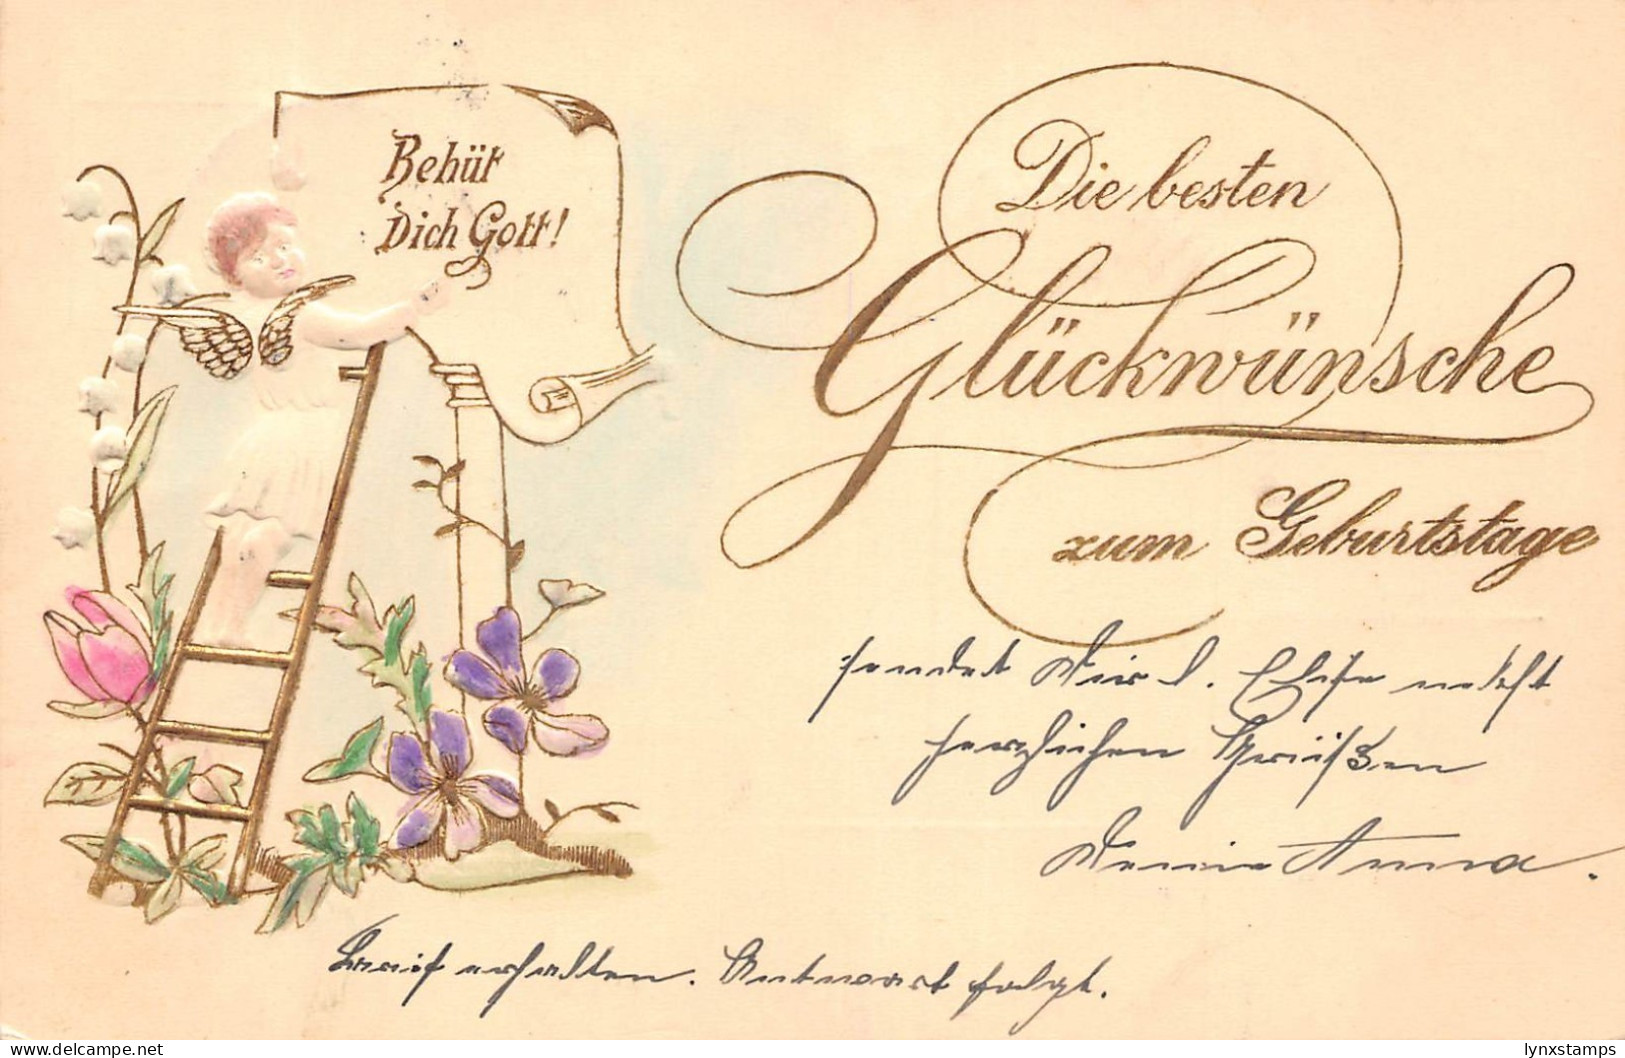 Behüt
Dich Gott!
Die besten
Glückwünsche
zum Geburtstage
sendet Dir l. Elise nebst
herzlichen Grüßen
Deine Anna.
Brief erhalten. Antwort folgt.
lynxstamps